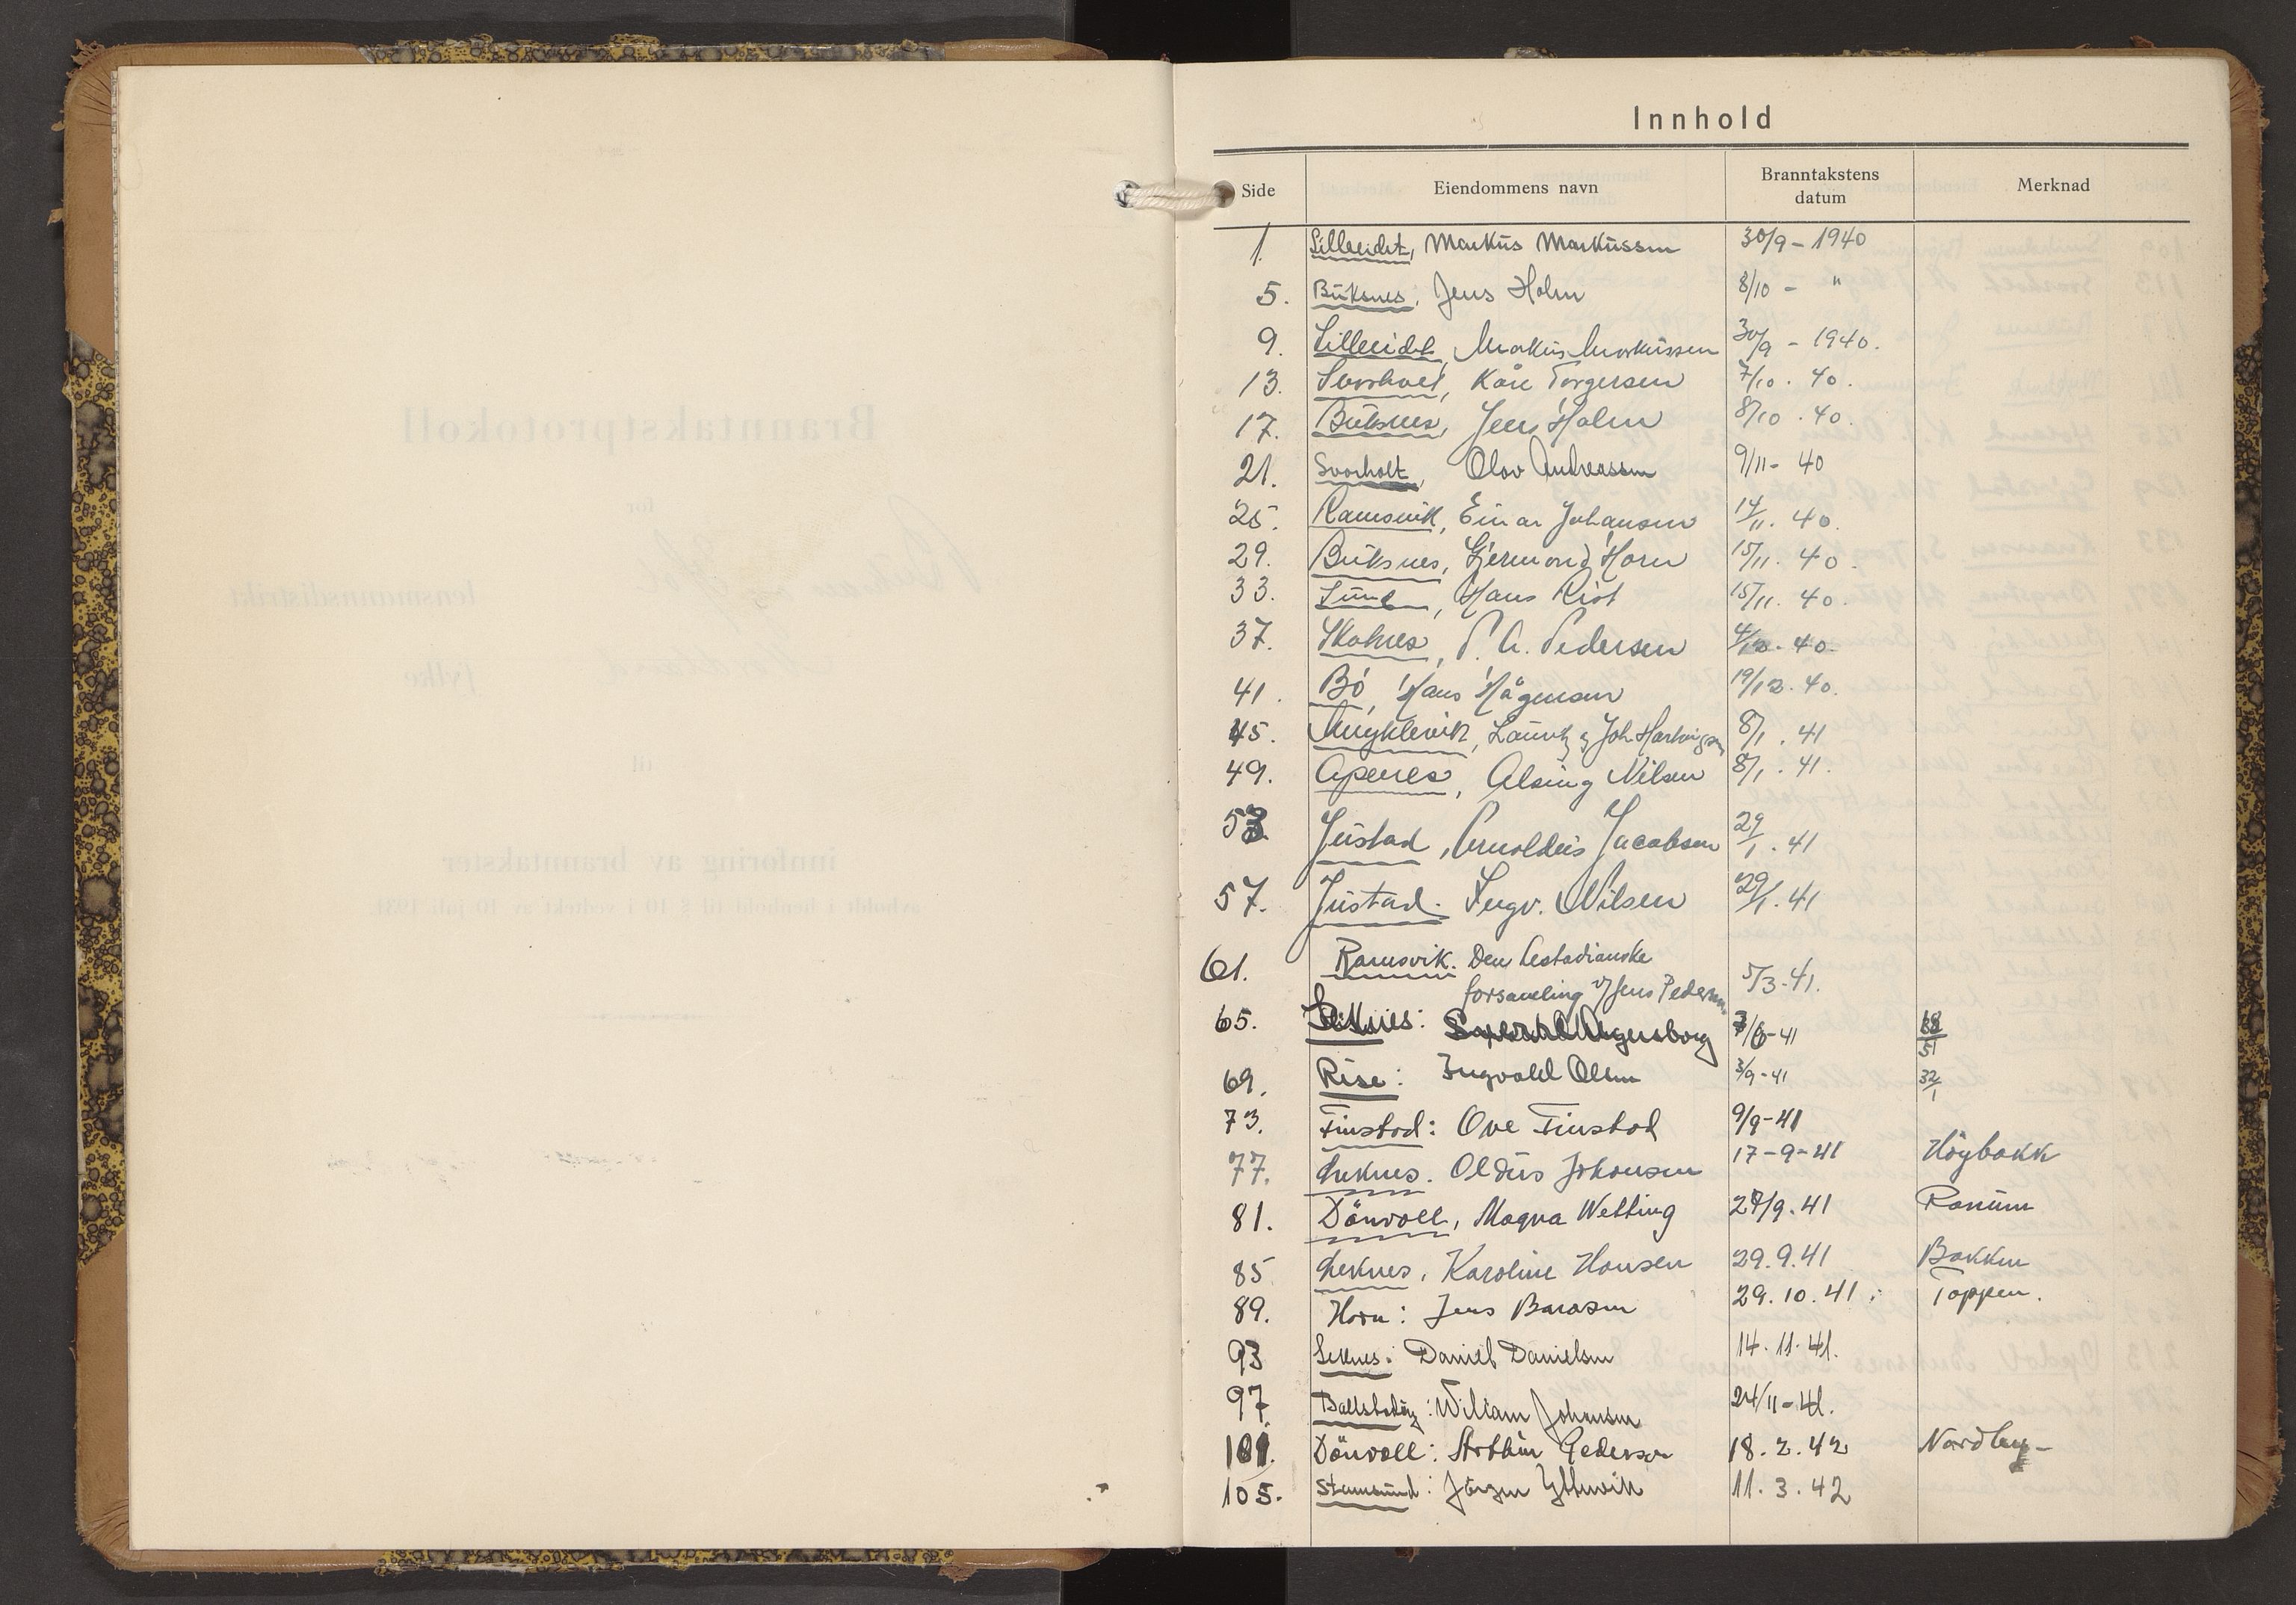 Innhold
Side Eiendommens navn Branntakstens datum Merknad
1. Lilleeidet, Markus Markussen 30/9 - 1940
5. Buksnes, Jens Holm 8/10 - "
9. Lilleeidet, Markus Markussen 30/9 - 1940.
13. Svarholt, Kåre Torgersen 7/10. 40.
17. Buksnes, Jens Holm 8/10. 40.
21. Svarholt, Olav Andreassen 9/11- 40
25. Ramsvik, Einar Johansen 14/11. 40.
29. Buksnes, Gjermond Horn 15/11. 40.
33. Sund, Hans Rist 15/11. 40.
37. Skotnes, P. A. Pedersen 4/12. 40.
41. Bö, Hans Hågensen 19/12. 40.
45. Myklevik, Lauritz og Joh. Hartvigsen 8/1. 41
49. Apenes, Alsing Nilsen 8/1. 41.
53 Justad, Arnoldus Jacobsen 29/1. 41
57. Justad. Ingv. Nilsen 29/1. 41
61. Ramsvik. Den Lestadianske
forsamling v/ Jens Pedersen. 5/3-41.
65. Leknes: Angersborg /6-41 68/51
69. Rise: Ingvald Olsen 3/9-41 32/1
73. Finstad: Ove Finstad 9/9-41
77. Leknes. Oldus Johansen 17-9-41 Höybakk
81. Dönvoll, Magna Wetting 29/9.41 Ranum
85 Leknes, Karoline Hansen 29.9.41 Bakken
89. Horn: Jens Barosen 29.10.41. Toppen.
93 Leknes: Daniel Danielsen 14.11.41.
97. Ballstadöy: Wiliam Johansen 24/11-41.
101. Dönvoll: Arthur Pedersen 18.2.42 Nordby-
105. Stamsund: Jörgen Yttervik 11.3.42